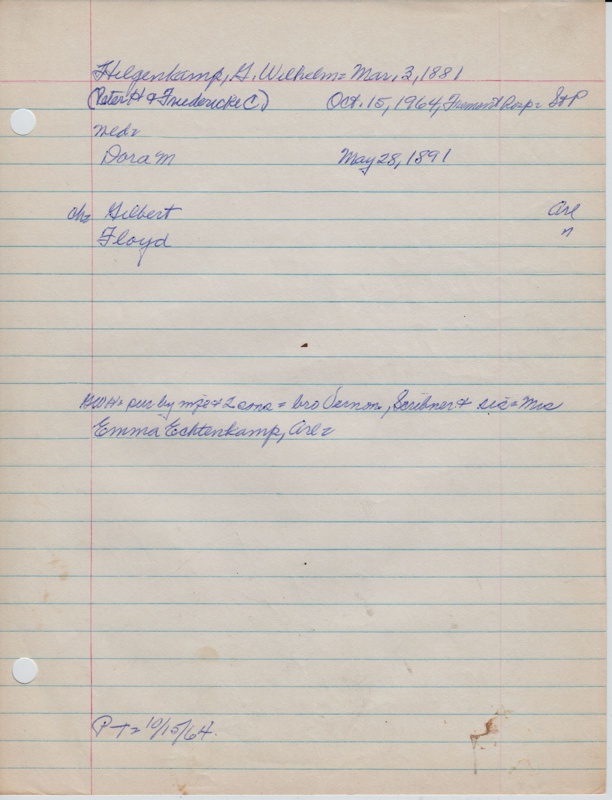 Hilgenkamp, G. Wilhelm = Mar. 3, 1881
(Peter H & Fridericke C.) Oct. 15, 1964, Fremont Hosp = St P
wed =
Dora M May 28, 1891
ch = Gilbert Arl
Floyd "
sur by wife & 2 sons = bro Vernon, Scribner & sis = Mrs
Emma Echtenkamp, Arl =
P-T = 10/15/64.